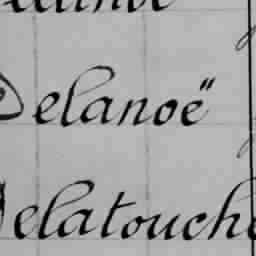 Delanoë
Delatouche